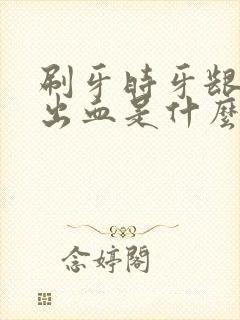 刷牙時牙齦
出血是什麼
念婷閣